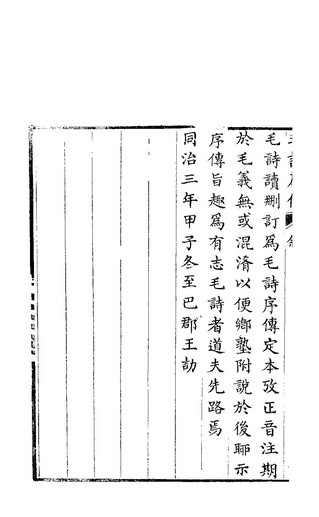 毛詩讀刪訂爲毛詩序傳定本攷正音注期
於毛義無或混淆以便鄉塾附說於後聊示
序傳旨趣爲有志毛詩者道夫先路焉
同治三年甲子冬至巴郡王劼